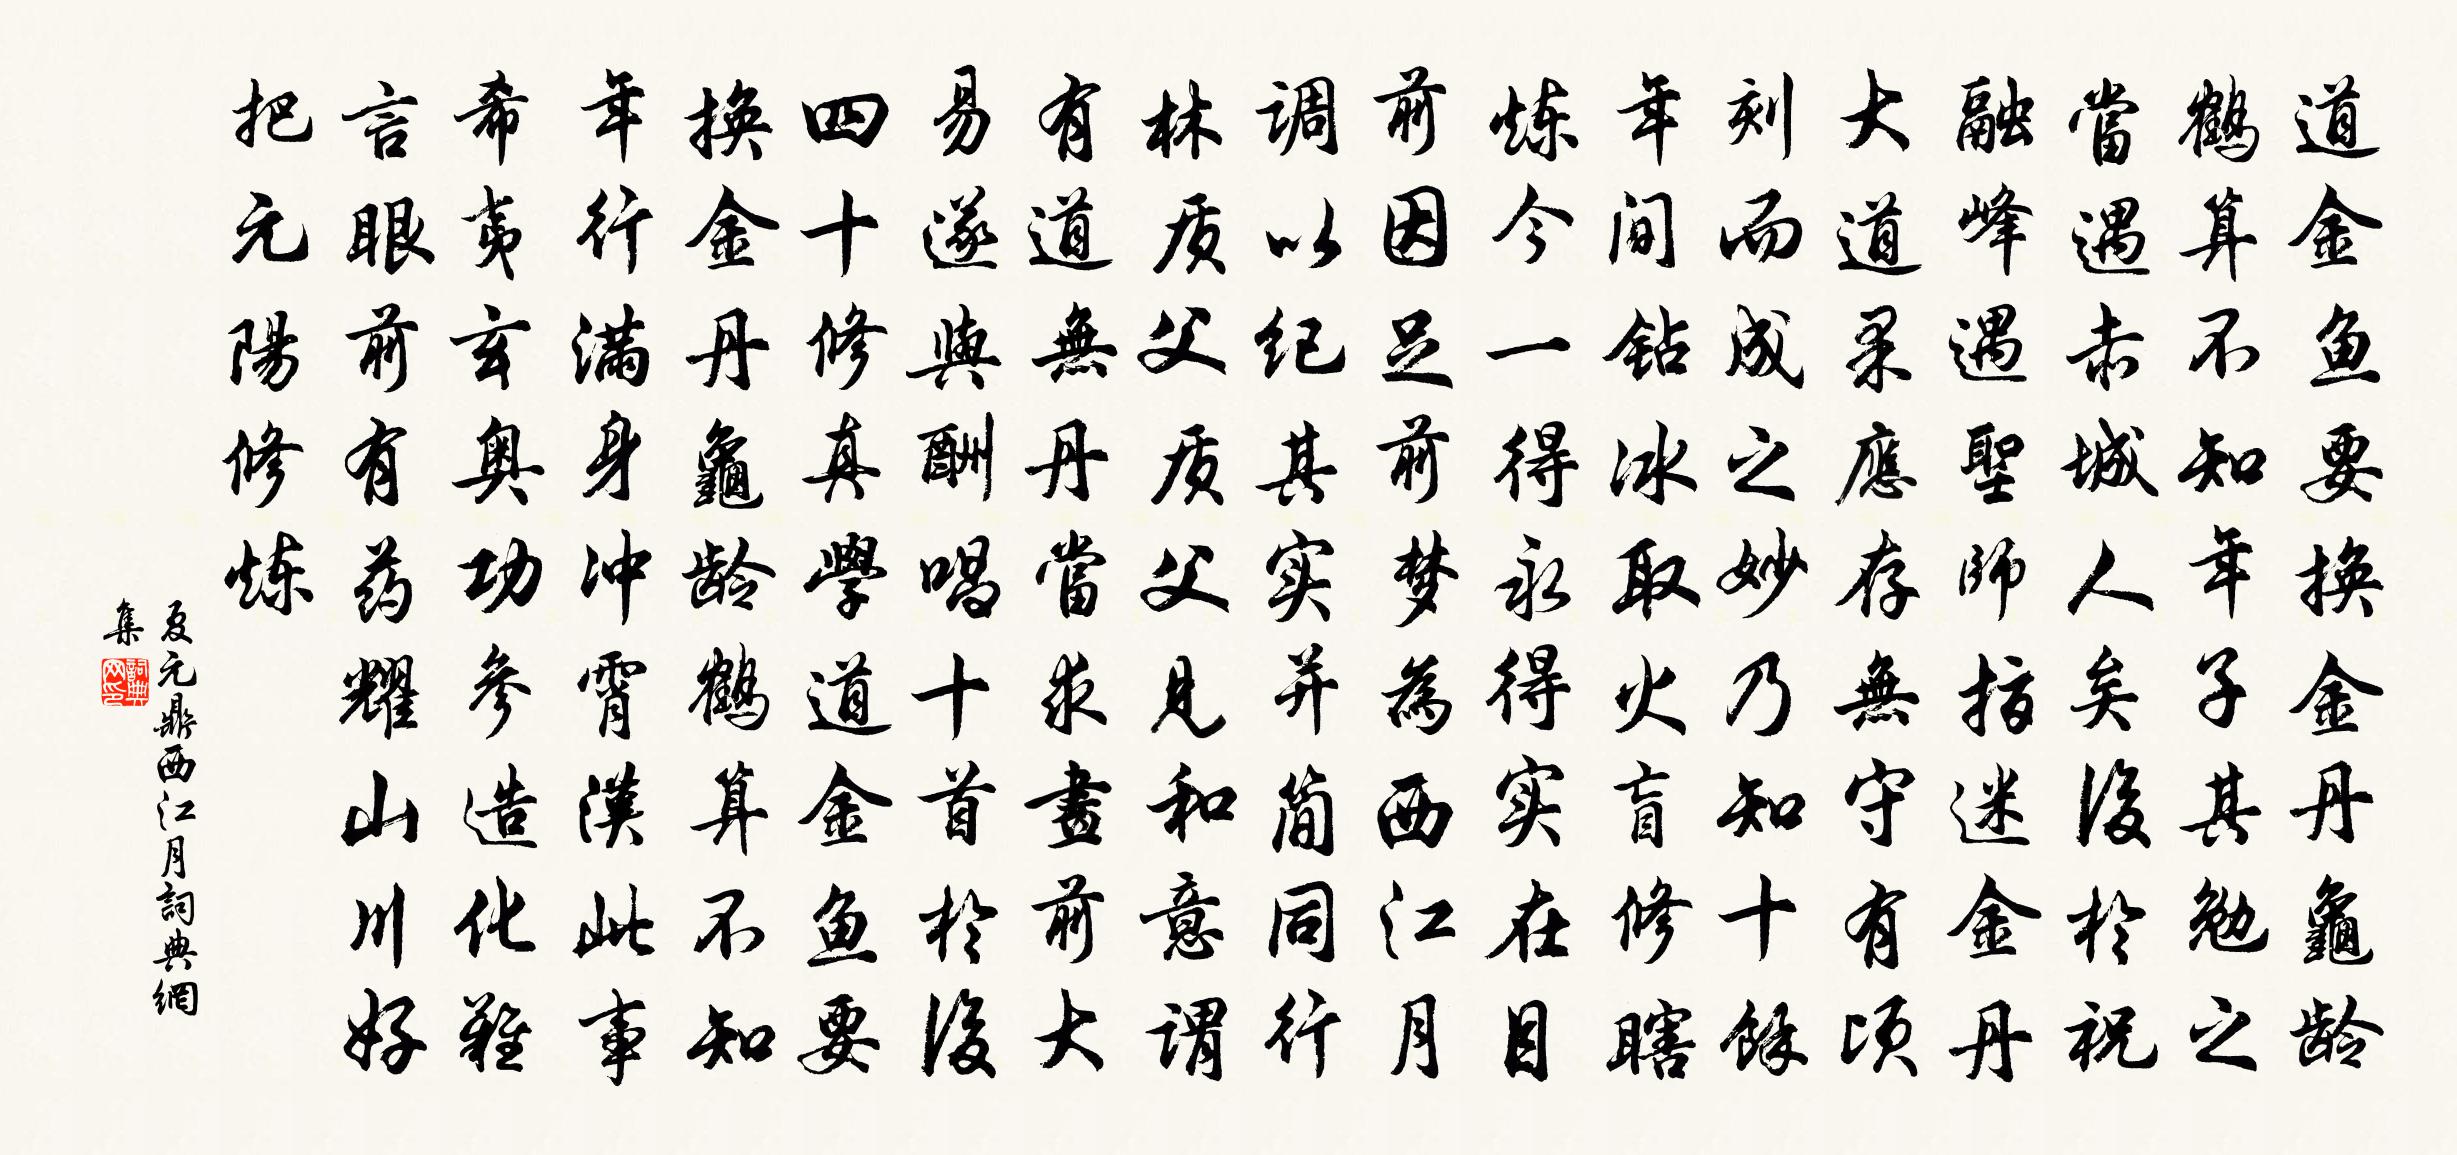 道金鱼要换金丹龜龄
鶴算不知年子其勉之
當遇赤城人矣後於祝
融峰遇聖師指迷金丹
大道柔應存無守有頃
刻而成之妙乃知十餘
年间钻冰取火盲修瞎
炼今一得永得实在目
前因足前梦為西江月
调以纪其实并简同行
林质父质父見和意谓
有道無丹當求畫前大
易遂與酬唱十首於後
四十修真學道金鱼要
换金丹龜龄鶴算不知
年行满身冲霄漢此事
希夷玄奥功参造化難
言眼前有药耀山川好
把元陽修炼
夏元鼎西江月詞典網
集
詞典网印